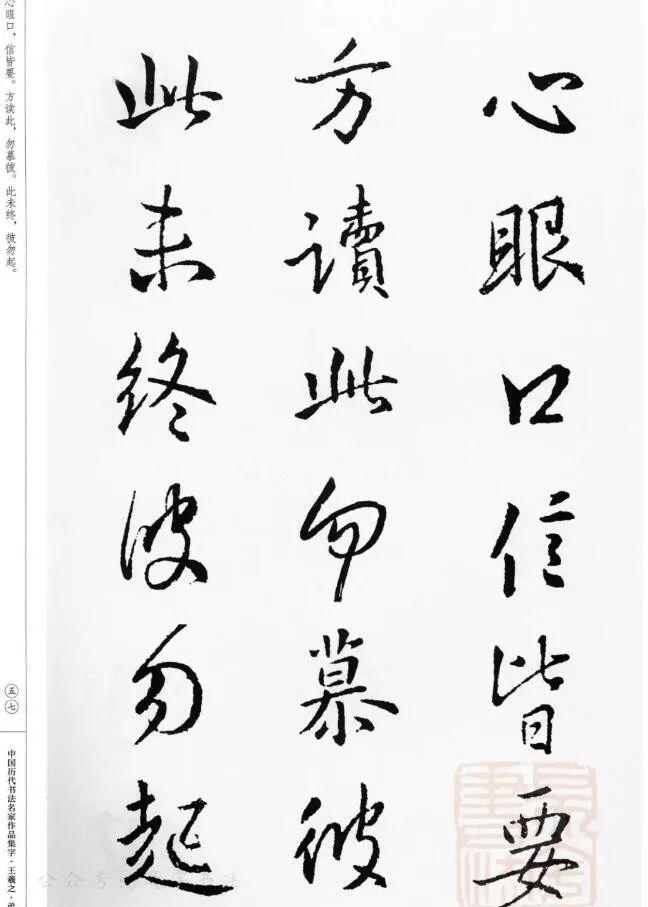 心眼口信皆要
方讀此勿慕彼
此未终彼勿起
心眼口，信皆要。方读此，勿慕彼。此未终，彼勿起。
五七
中国历代书法名家作品集字·王羲之·弟